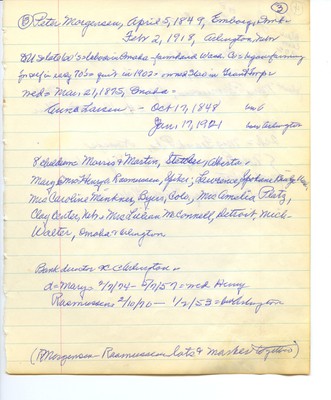 ② Peter Morgensen, April 5, 1849, Emborg, Denk.
Feb 2, 1918, Arlington, Nebr
2
US late 60's - labor in Omaha - farmhand Wash. Co. began farming
for self in early 70's - quit in 1902 - owned 360 in Grant Twp.
wed - Mar. 21, 1875, Omaha -
Anna Larsen - Oct 17, 1848
Jan. 17, 1921
bur. Arlington
8 children: Morris & Martin, Stecher, Alberta -
Mary (Mrs Henry) Rasmussen, Lawrence, Spokane
Mrs Caroline Menkner, Byers, Colo, Mrs Amalia Platz,
Clay Center, Nebr, Mrs Lillian McConnell, Detroit, Mich.
Walter, Omaha & Arlington
Bank director Arlington -
d = Mary = 2/7/74 - 5/7/57 = wed Henry
Rasmussen 2/10/70 - 1/2/53 = Arlington
(P. Morgensen - Rasmussen lots & marker together)